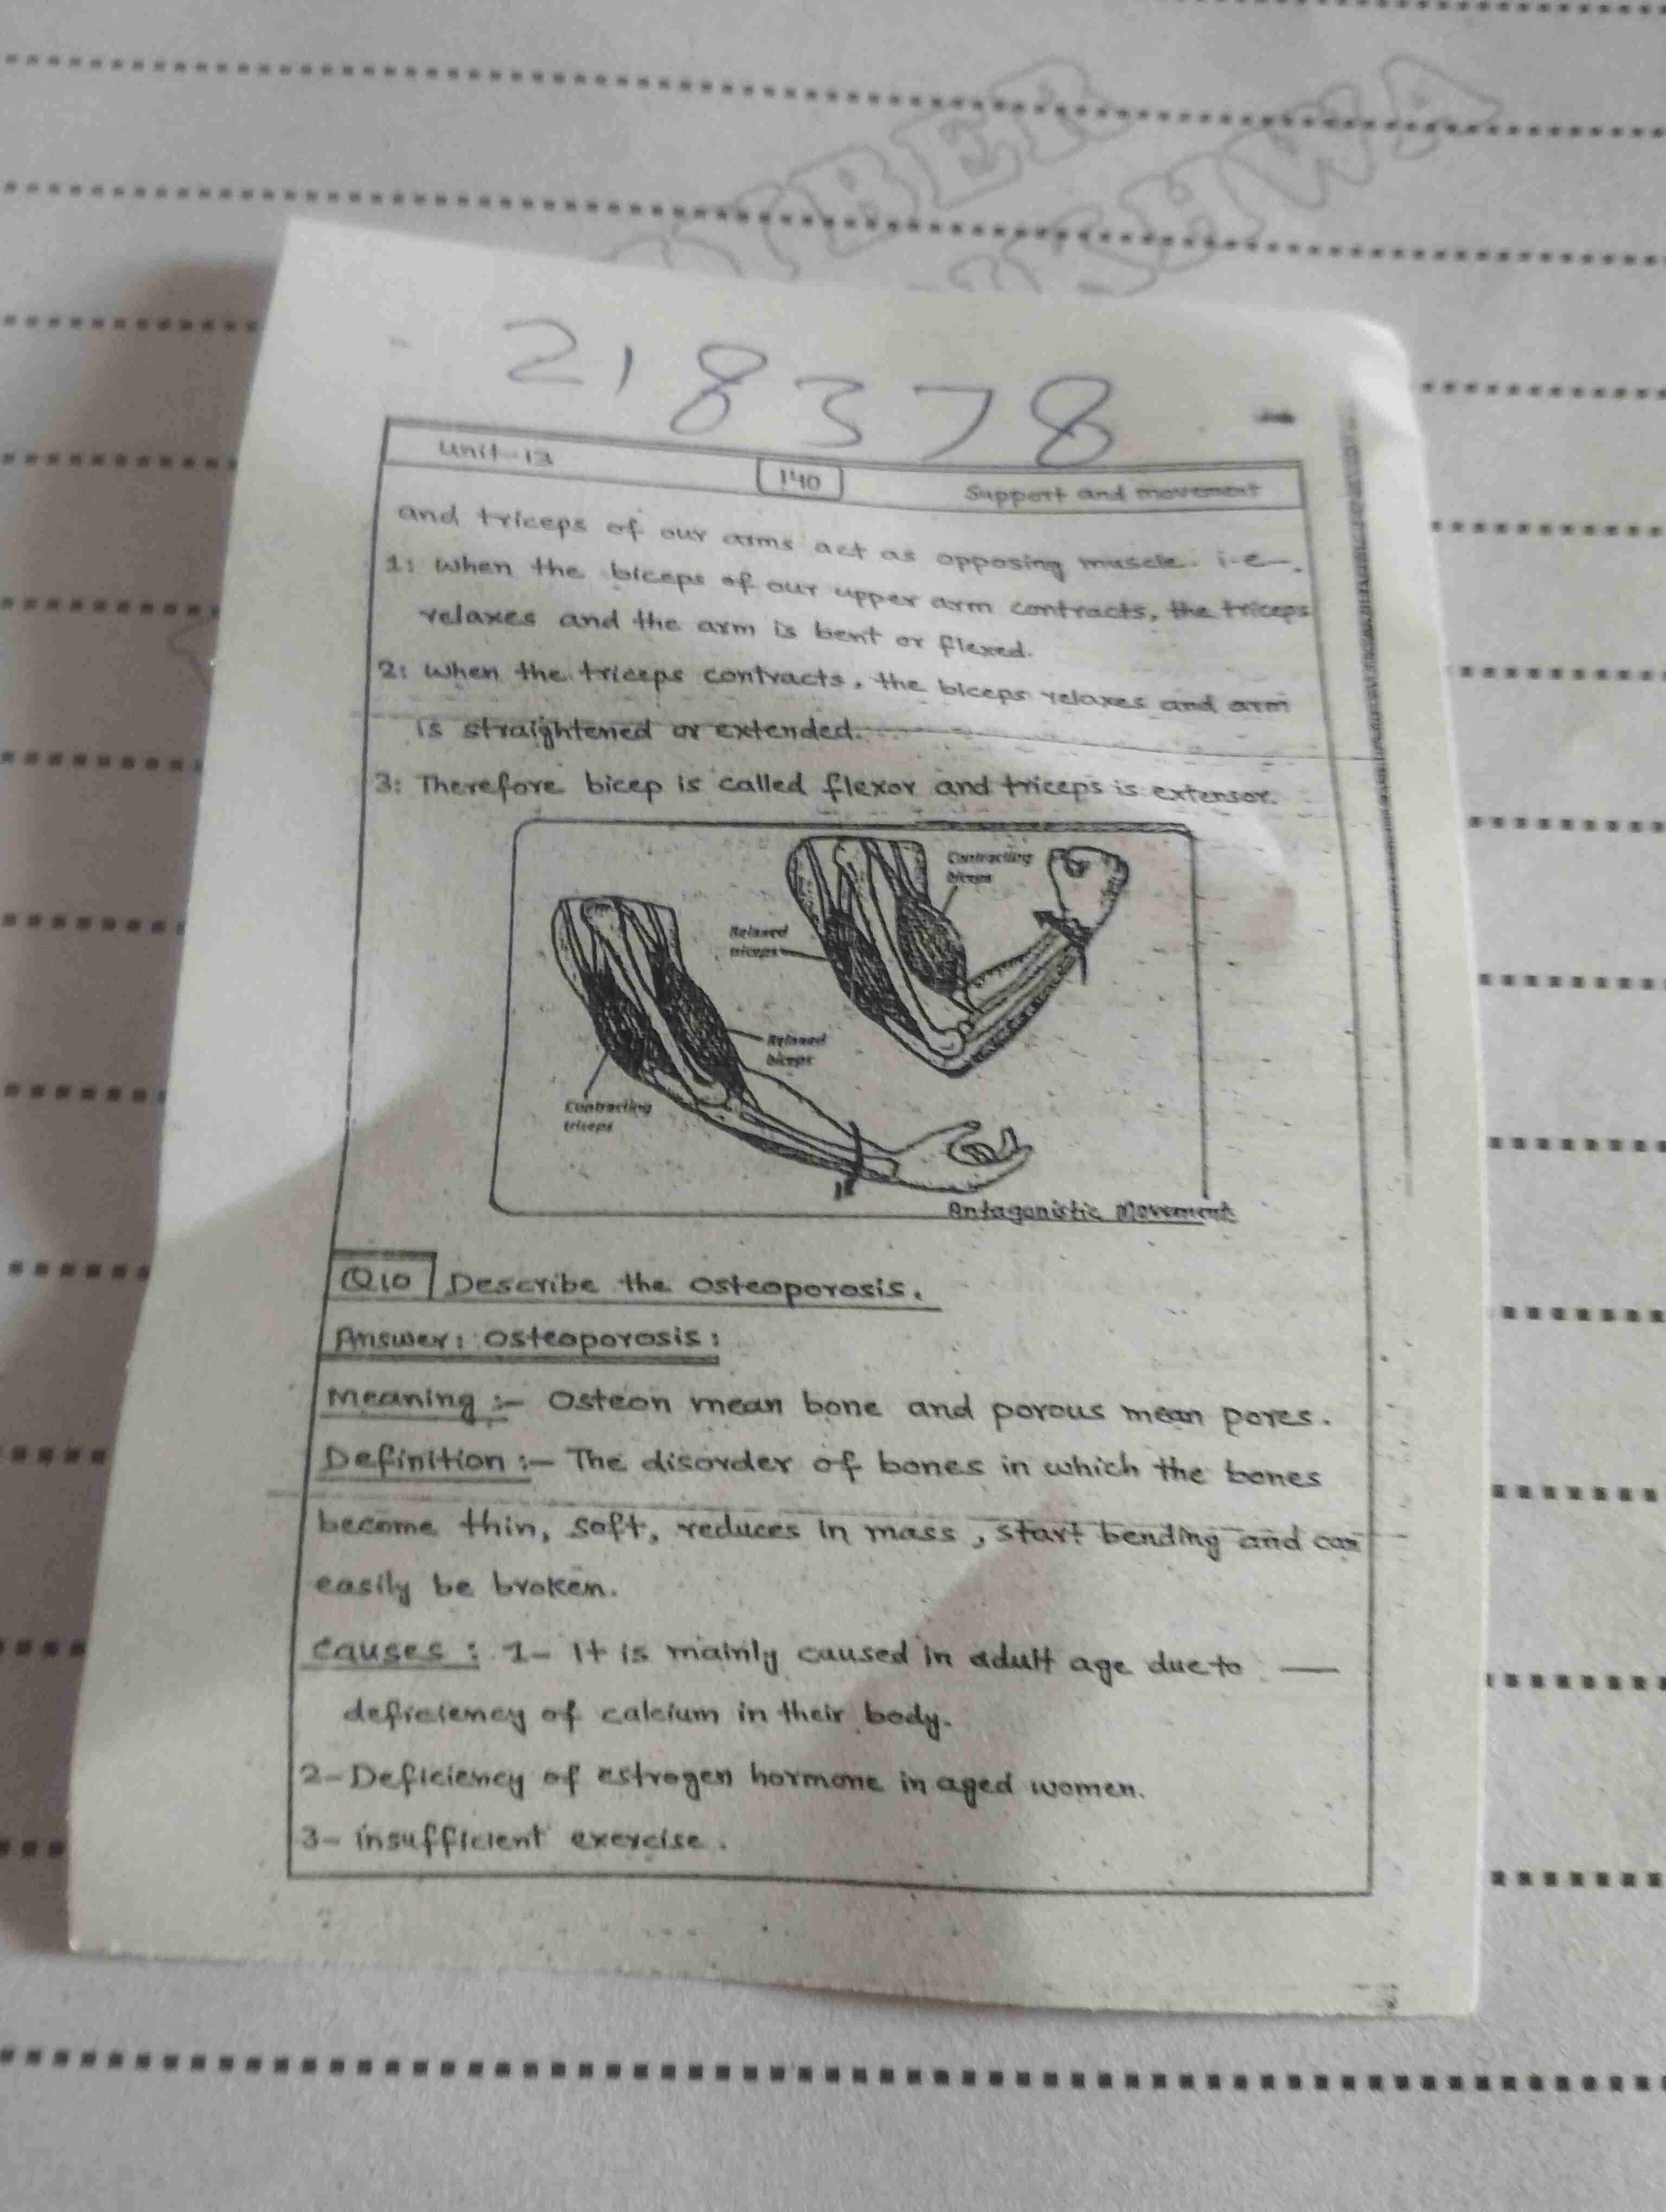 218378
Unit-13
140
Support and movement
and triceps of our arms act as opposing muscle. i.e—.
1: When the biceps of our upper arm contracts, the triceps
relaxes and the arm is bent or flexed.
2: When the triceps contracts, the biceps relaxes and arm
is straightened or extended.
3: Therefore bicep is called flexor and triceps is extensor.
Contracting
biceps
Relaxed
triceps
Relaxed
biceps
Contracting
triceps
Antagonistic Movement
Q10 Describe the Osteoporosis.
Answer: Osteoporosis:
Meaning :- Osteon mean bone and porous mean pores.
Definition :- The disorder of bones in which the bones
become thin, soft, reduces in mass, start bending and can
easily be broken.
Causes : 1- It is mainly caused in adult age due to —
deficiency of calcium in their body.
2- Deficiency of estrogen hormone in aged women.
3- insufficient exercise.